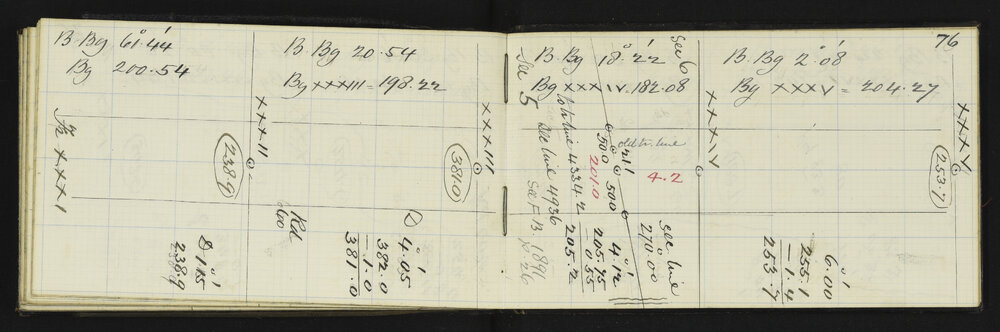 B. Bg 61°.44'
Bg 200.54
Fr XXXI
XXXII
238.9
D 1°.15'
238.9
B. Bg 20.54
Bg XXXIII = 198.22
XXXIII
381.0
Rd
600
D 4°.05'
382.0
- 1.0
381.0
B. Bg 18°.22'
Bg XXXIV. 182.08
Sec 5
Sec 6
to tr. line 4334.2
Sec line 4936
See F.B. 1896
p 26
500
201.0
500
old tr. line
4.2
4°.12'
205.75
- 0.55
205.2
sec line
270°.00
XXXIV
76
B. Bg 2°.08'
Bg XXXV = 204.27
XXXV
253.7
6°.00'
255.1
- 1.4
253.7